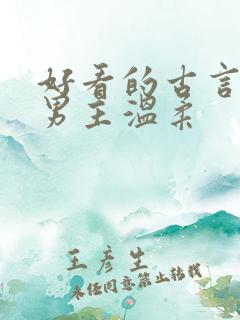 好看的古言
男主温柔
王彦生
未经同意禁止转载